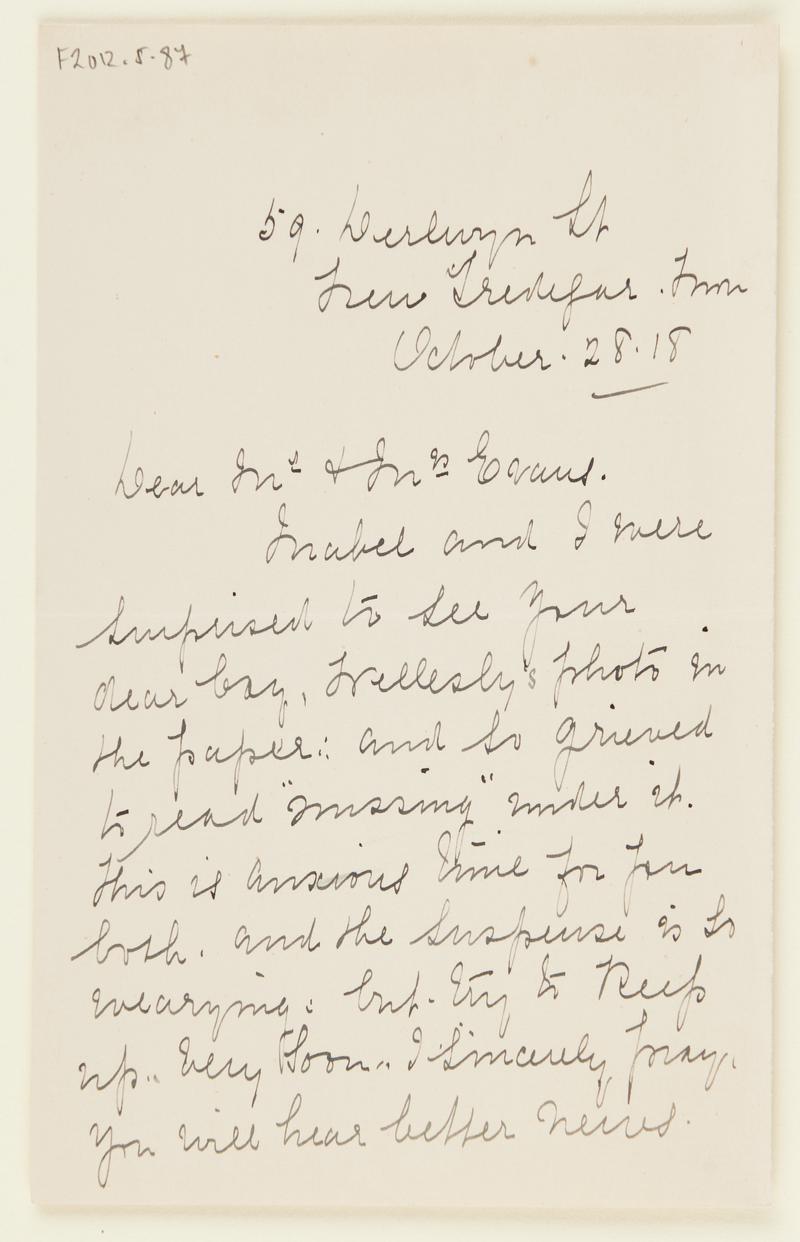 F2012.5.87
59. Derlwyn St
New Tredegar. Mon
October. 28.18
Dear Mr & Mrs Evans.
Mabel and I were
surprised to see your
dear boy, Wellesly's photo in
the paper: and so grieved
to read "missing" under it.
This is anxious time for you
both. and the suspense is so
wearying: but. try to keep
up.. Very soon.. I sincerely pray,
you will hear better news.